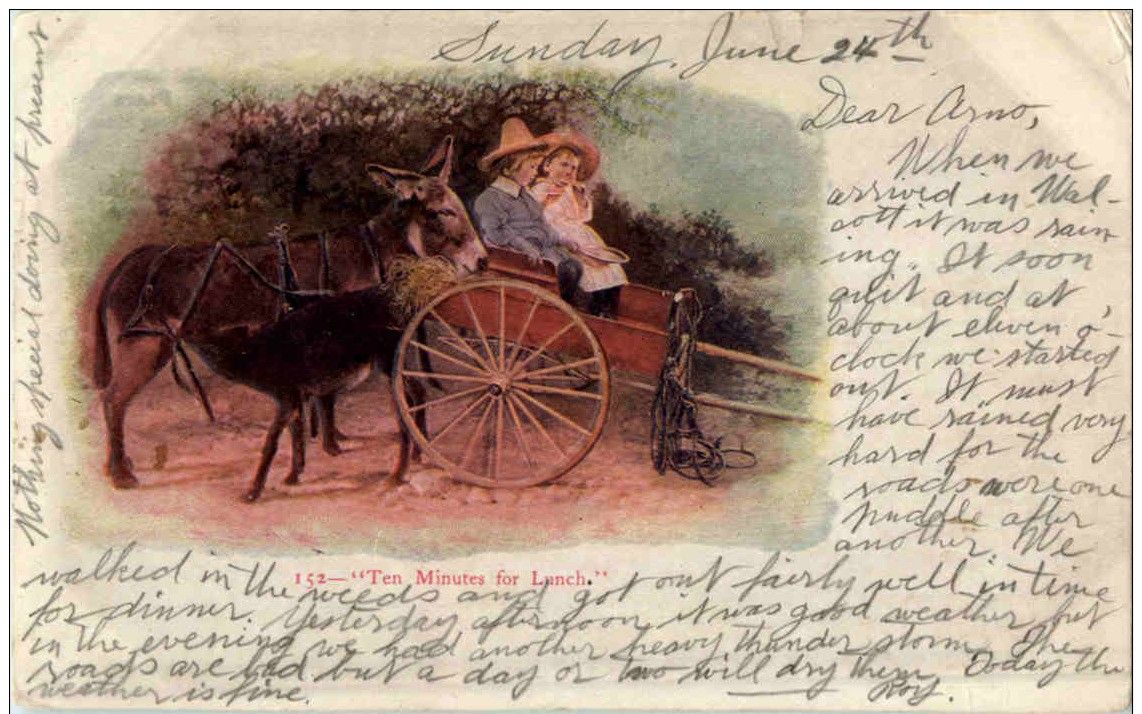 Sunday, June 24th
Dear Arno,
When we
arrived in Wal-
cott it was rain-
ing. It soon
quit and at
about eleven o'-
clock we started
out. It must
have rained very
hard for the
roads were one
puddle after
another. We
152—"Ten Minutes for Lunch."
walked in the weeds and got out fairly well in time
for dinner. Yesterday afternoon it was good weather but
in the evening we had another heavy thunder storm. The
roads are bad but a day or two will dry them. Today the
weather is fine.
Roy.
Nothing special doing at present.